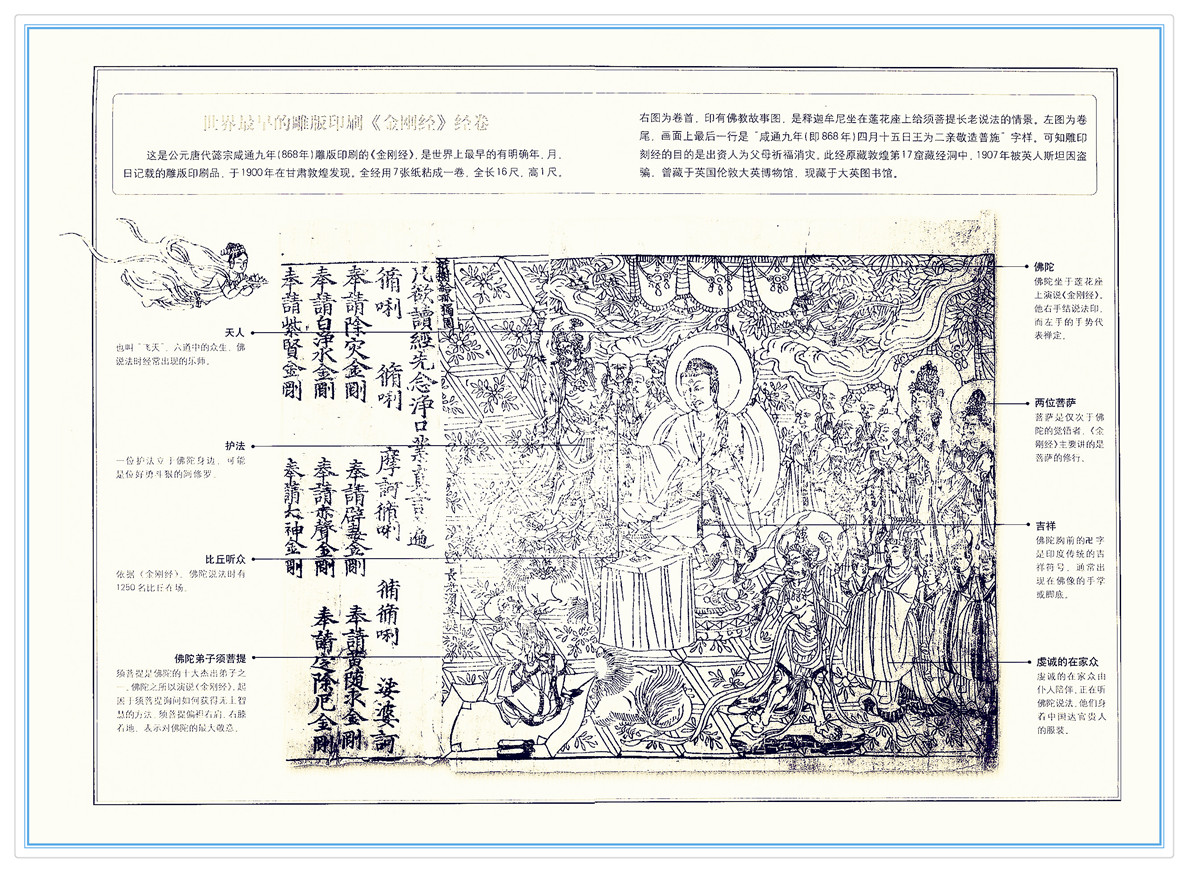 世界最早的雕版印刷《金刚经》经卷
这是公元唐代懿宗咸通九年(868年)雕版印刷的《金刚经》,是世界上最早的有明确年、月、
日记载的雕版印刷品,于1900年在甘肃敦煌发现。全经用7张纸粘成一卷,全长16尺,高1尺。
右图为卷首,印有佛教故事图,是释迦牟尼坐在莲花座上给须菩提长老说法的情景。左图为卷
尾,画面上最后一行是“咸通九年(即868年)四月十五日王为二亲敬造普施”字样。可知雕印
刻经的目的是出资人为父母祈福消灾。此经原藏敦煌第17窟藏经洞中,1907年被英人斯坦因盗
骗,曾藏于英国伦敦大英博物馆,现藏于大英图书馆。
天人
也叫“飞天”,六道中的众生,佛
说法时经常出现的乐师。
护法
一位护法立于佛陀身边,可能
是位好勇斗狠的阿修罗。
比丘听众
依据《金刚经》,佛陀说法时有
1250名比丘在场。
佛陀弟子须菩提
须菩提是佛陀的十大杰出弟子之
一,佛陀之所以演说《金刚经》,起
因于须菩提询问如何获得无上智
慧的方法。须菩提偏袒右肩,右膝
着地,表示对佛陀的最大敬意。
凡欲讀經先念淨口業真言一遍
脩唎 脩唎 摩訶脩唎 脩脩唎 娑婆訶
奉請除灾金剛 奉請辟毒金剛 奉請黄隨求金剛
奉請白淨水金剛 奉請赤聲金剛 奉請定除厄金剛
奉請紫賢金剛 奉請大神金剛
佛陀
佛陀坐于莲花座
上演说《金刚经》。
他右手结说法印,
而左手的手势代
表禅定。
两位菩萨
菩萨是仅次于佛
陀的觉悟者,《金
刚经》主要讲的是
菩萨的修行。
吉祥
佛陀胸前的卍字
是印度传统的吉
祥符号,通常出
现在佛像的手掌
或脚底。
虔诚的在家众
虔诚的在家众由
仆人陪伴,正在听
佛陀说法,他们身
着中国达官贵人
的服装。